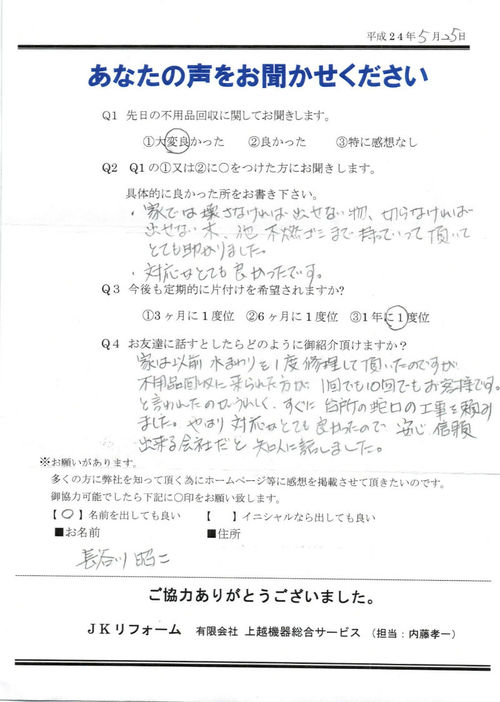 平成24年5月25日
あなたの声をお聞かせください
Q1 先日の不用品回収に関してお聞きします。
①大変良かった ②良かった ③特に感想なし
Q2 Q1の①又は②に○をつけた方にお聞きします。
具体的に良かった所をお書き下さい。
・家では壊さなければ出せない物、切らなければ
出せない木、他 不燃ゴミまで持っていって頂いて
とても助かりました。
・対応がとても良かったです。
Q3 今後も定期的に片付けを希望されますか?
①3ヶ月に1度位 ②6ヶ月に1度位 ③1年に1度位
Q4 お友達に話すとしたらどのように御紹介頂けますか?
家は以前 水まわりを1度修理して頂いたのですが
不用品回収に来られた方が、1回でも10回でもお客様です。
と言われたのがうれしく、すぐに台所の蛇口の工事を頼み
ました。やはり対応がとても良かったので 安心、信頼
出来る会社だと 知人に話しました。
※お願いがあります。
多くの方に弊社を知って頂く為にホームページ等に感想を掲載させて頂きたいのです。
御協力可能でしたら下記に○印をお願い致します。
【○】名前を出しても良い 【 】イニシャルなら出しても良い
■お名前 ■住所
長谷川 昭二
ご協力ありがとうございました。
JKリフォーム 有限会社 上越機器総合サービス (担当:内藤孝一)